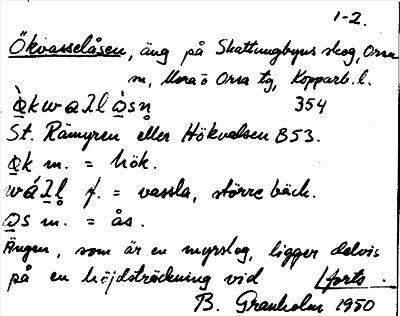 1-2.
Ökvasselåsen, äng på Skattungbyns skog, Orsa
sn, Mora o Orsa tg, Kopparb. l.
354
St. Rämyren eller Hökvalsen B53.
m. = hök.
f. = vassla, större bäck.
m. = ås.
Ängen, som är en myrslog, ligger delvis
på en höjdsträckning vid forts.
B. Granholm 1950